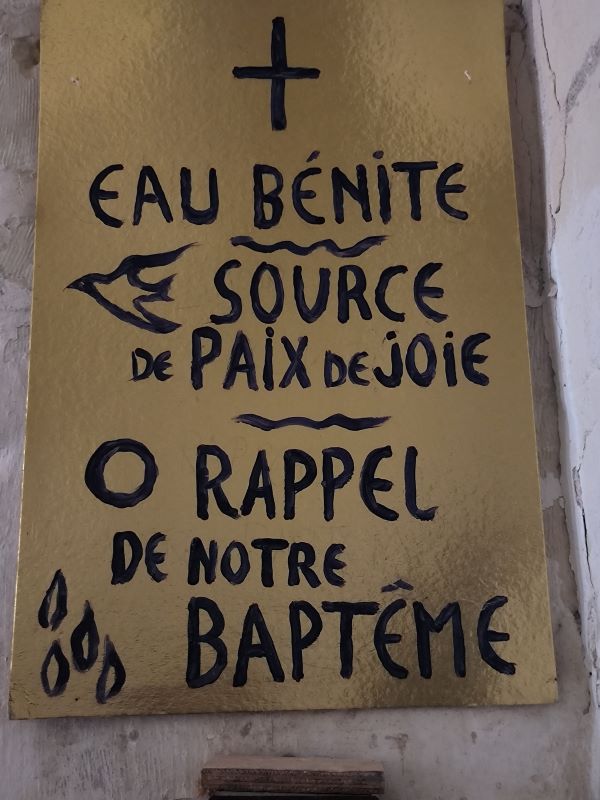 EAU BÉNITE
SOURCE
DE PAIX DE JOIE
O RAPPEL
DE NOTRE
BAPTÊME